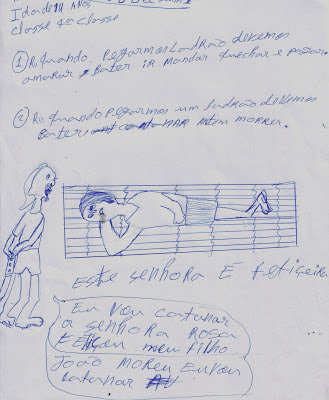 Idade 14 Anos
classe 4a classe
① R: Quando Pegarmos Ladrão devemos
amarar e Bater ir Mandar quechar e
② R: quando Pegarmos um ladrão devemos
Bater catanar Atem morrer.
Este senhora É fetiçeira
Eu vou catanar
a senhora Rosa
meu filho
João MoReu Eu vou
catanar